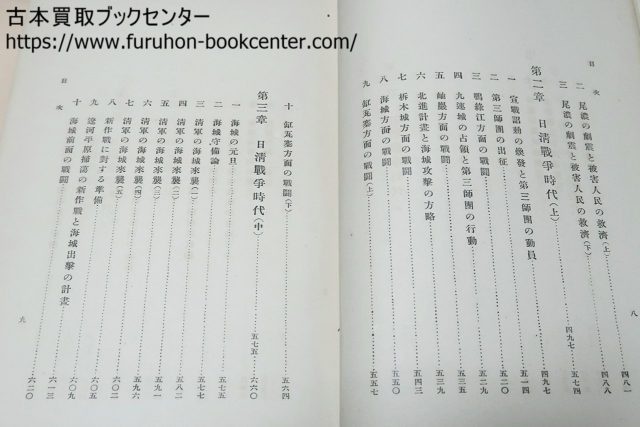 古本買取ブックセンター
https://www.furuhon-bookcenter.com/
目次
八
二 尾濃の劇震と被害人民の救濟(上)……四八一
三 尾濃の劇震と被害人民の救濟(下)……四八八
第二章 日清戰爭時代(上)……四九七—五七四
一 宣戰詔勅の煥發と第三師團の動員……四九七
二 第三師團の出征……五一四
三 鴨綠江方面の戰鬪……五二九
四 九連城の占領と第三師團の行動……五三四
五 岫巖方面の戰鬪……五三九
六 北進計畫と海城攻擊の方略……五四三
七 柝木城方面の戰鬪……五五〇
八 海城方面の戰鬪
九 缸瓦寨方面の戰鬪(上)……五五七
十 缸瓦寨方面の戰鬪(下)……五六四
第三章 日清戰爭時代(中)……五七五—六六〇
一 海城の元旦……五七五
二 海城守備論……五七七
三 清軍の海城來襲(一)……五八二
四 清軍の海城來襲(二)……五九一
五 清軍の海城來襲(三)……五九六
六 清軍の海城來襲(四)
七 清軍の海城來襲(五)……六〇二
八 新作戰に對する準備……六〇五
九 遼河平原掃蕩の新作戰と海城出擊の計畫……六〇九
十 海城前面の戰鬪……六一三
六二〇
目次
九